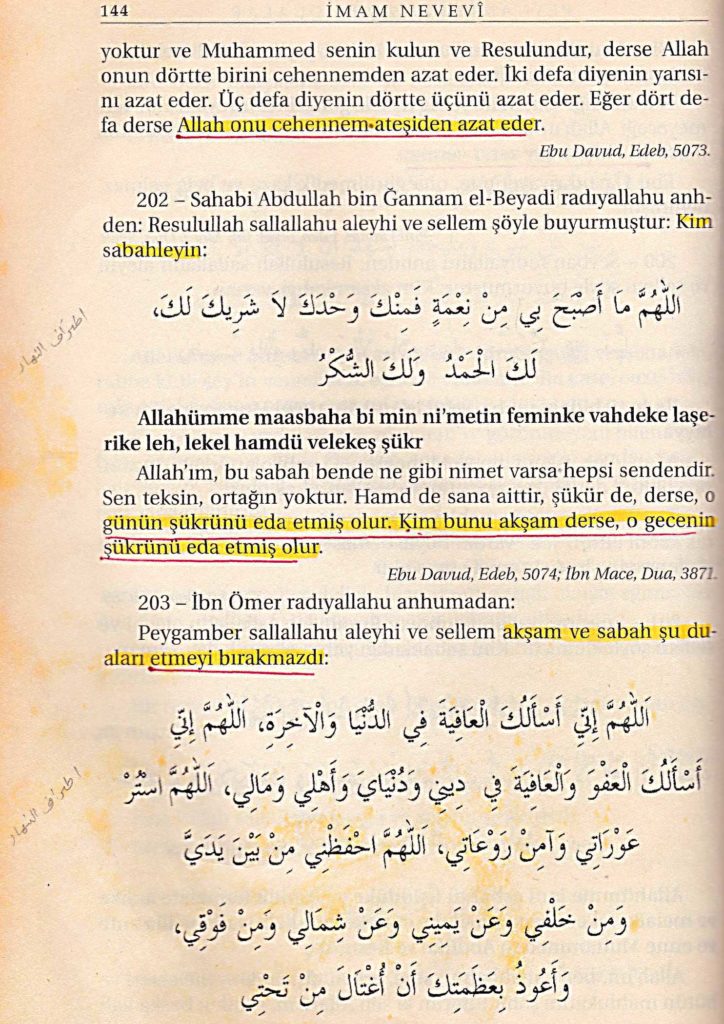 144 İMAM NEVEVÎ
yoktur ve Muhammed senin kulun ve Resulundur, derse Allah
onun dörtte birini cehennemden azat eder. İki defa diyenin yarısı-
nı azat eder. Üç defa diyenin dörtte üçünü azat eder. Eğer dört de-
fa derse Allah onu cehennem ateşiden azat eder.
Ebu Davud, Edeb, 5073.
202 – Sahabi Abdullah bin Ğannam el-Beyadi radıyallahu anh-
den: Resulullah sallallahu aleyhi ve sellem şöyle buyurmuştur: Kim
sabahleyin:
اَللّٰهُمَّ مَا أَصْبَحَ بِي مِنْ نِعْمَةٍ فَمِنْكَ وَحْدَكَ لَا شَرِيكَ لَكَ،
اطراف النهار
لَكَ الْحَمْدُ وَلَكَ الشُّكْرُ
Allahümme maasbaha bi min ni’metin feminke vahdeke laşe-
rike leh, lekel hamdü velekeş şükr
Allah’ım, bu sabah bende ne gibi nimet varsa hepsi sendendir.
Sen teksin, ortağın yoktur. Hamd de sana aittir, şükür de, derse, o
günün şükrünü eda etmiş olur. Kim bunu akşam derse, o gecenin
şükrünü eda etmiş olur.
Ebu Davud, Edeb, 5074; İbn Mace, Dua, 3871.
203 – İbn Ömer radıyallahu anhumadan:
Peygamber sallallahu aleyhi ve sellem akşam ve sabah şu du-
aları etmeyi bırakmazdı:
اَللّٰهُمَّ إِنِّي أَسْأَلُكَ الْعَافِيَةَ فِي الدُّنْيَا وَالْآخِرَةِ، اَللّٰهُمَّ إِنِّي
أَسْأَلُكَ الْعَفْوَ وَالْعَافِيَةَ فِي دِينِي وَدُنْيَايَ وَأَهْلِي وَمَالِي، اَللّٰهُمَّ اسْتُرْ
اطراف النهار
عَوْرَاتِي وَآمِنْ رَوْعَاتِي، اَللّٰهُمَّ احْفَظْنِي مِنْ بَيْنَ يَدَيَّ
وَمِنْ خَلْفِي وَعَنْ يَمِينِي وَعَنْ شِمَالِي وَمِنْ فَوْقِي،
وَأَعُوذُ بِعَظَمَتِكَ أَنْ أُغْتَالَ مِنْ تَحْتِي